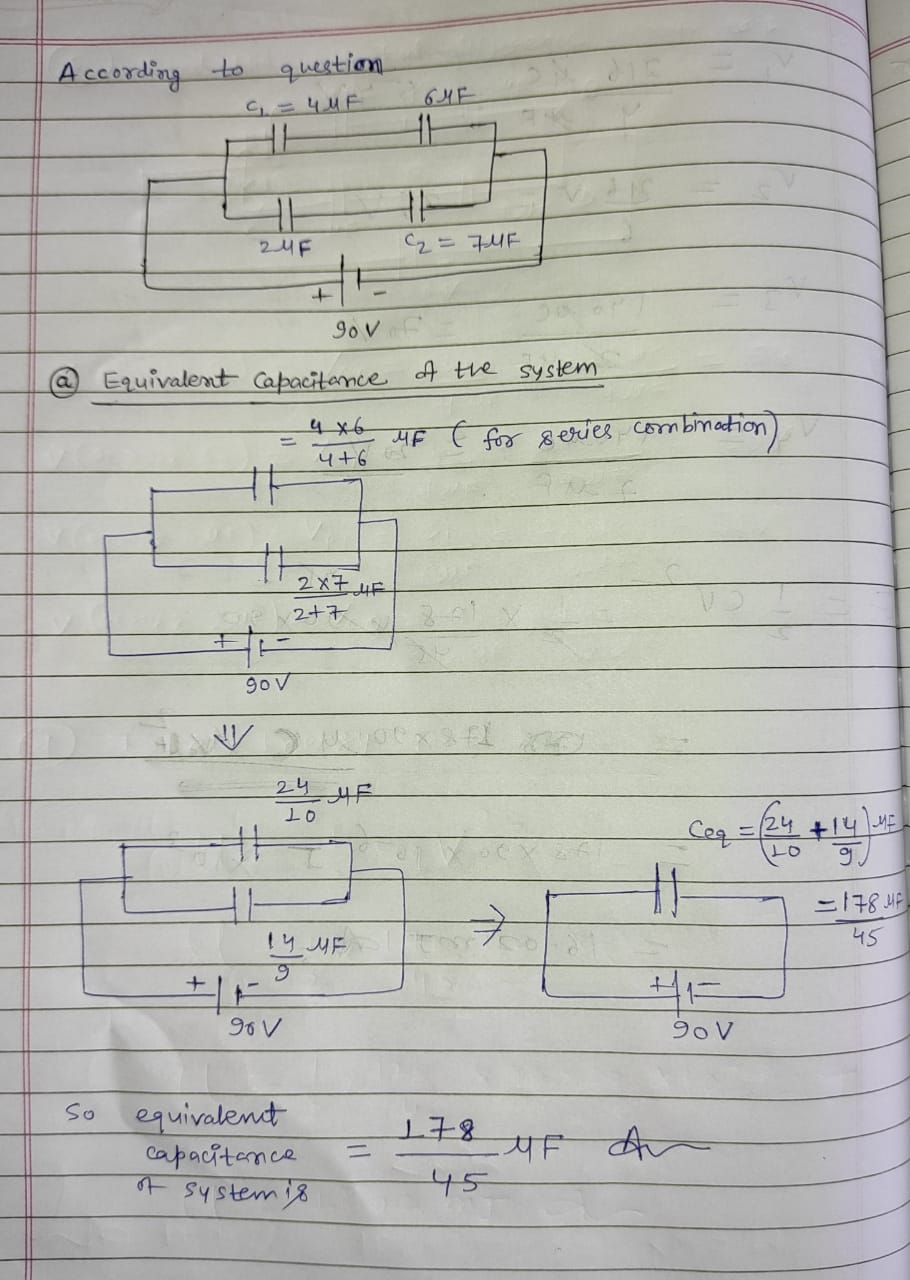 According to question
C₁ = 4μF 6μF
2μF C₂ = 7μF
+ -
90V
ⓐ Equivalent Capacitance of the system
= 4 x 6 / 4+6 μF ( for series combination)
2 x 7 / 2+7 μF
+ -
90V
⇓
24/10 μF
Ceq = (24/10 + 14/9) μF
= 178/45 μF
⇒
14/9 μF
+ -
90V
+ -
90V
So equivalent
capacitance = 178/45 μF Ans
of system is